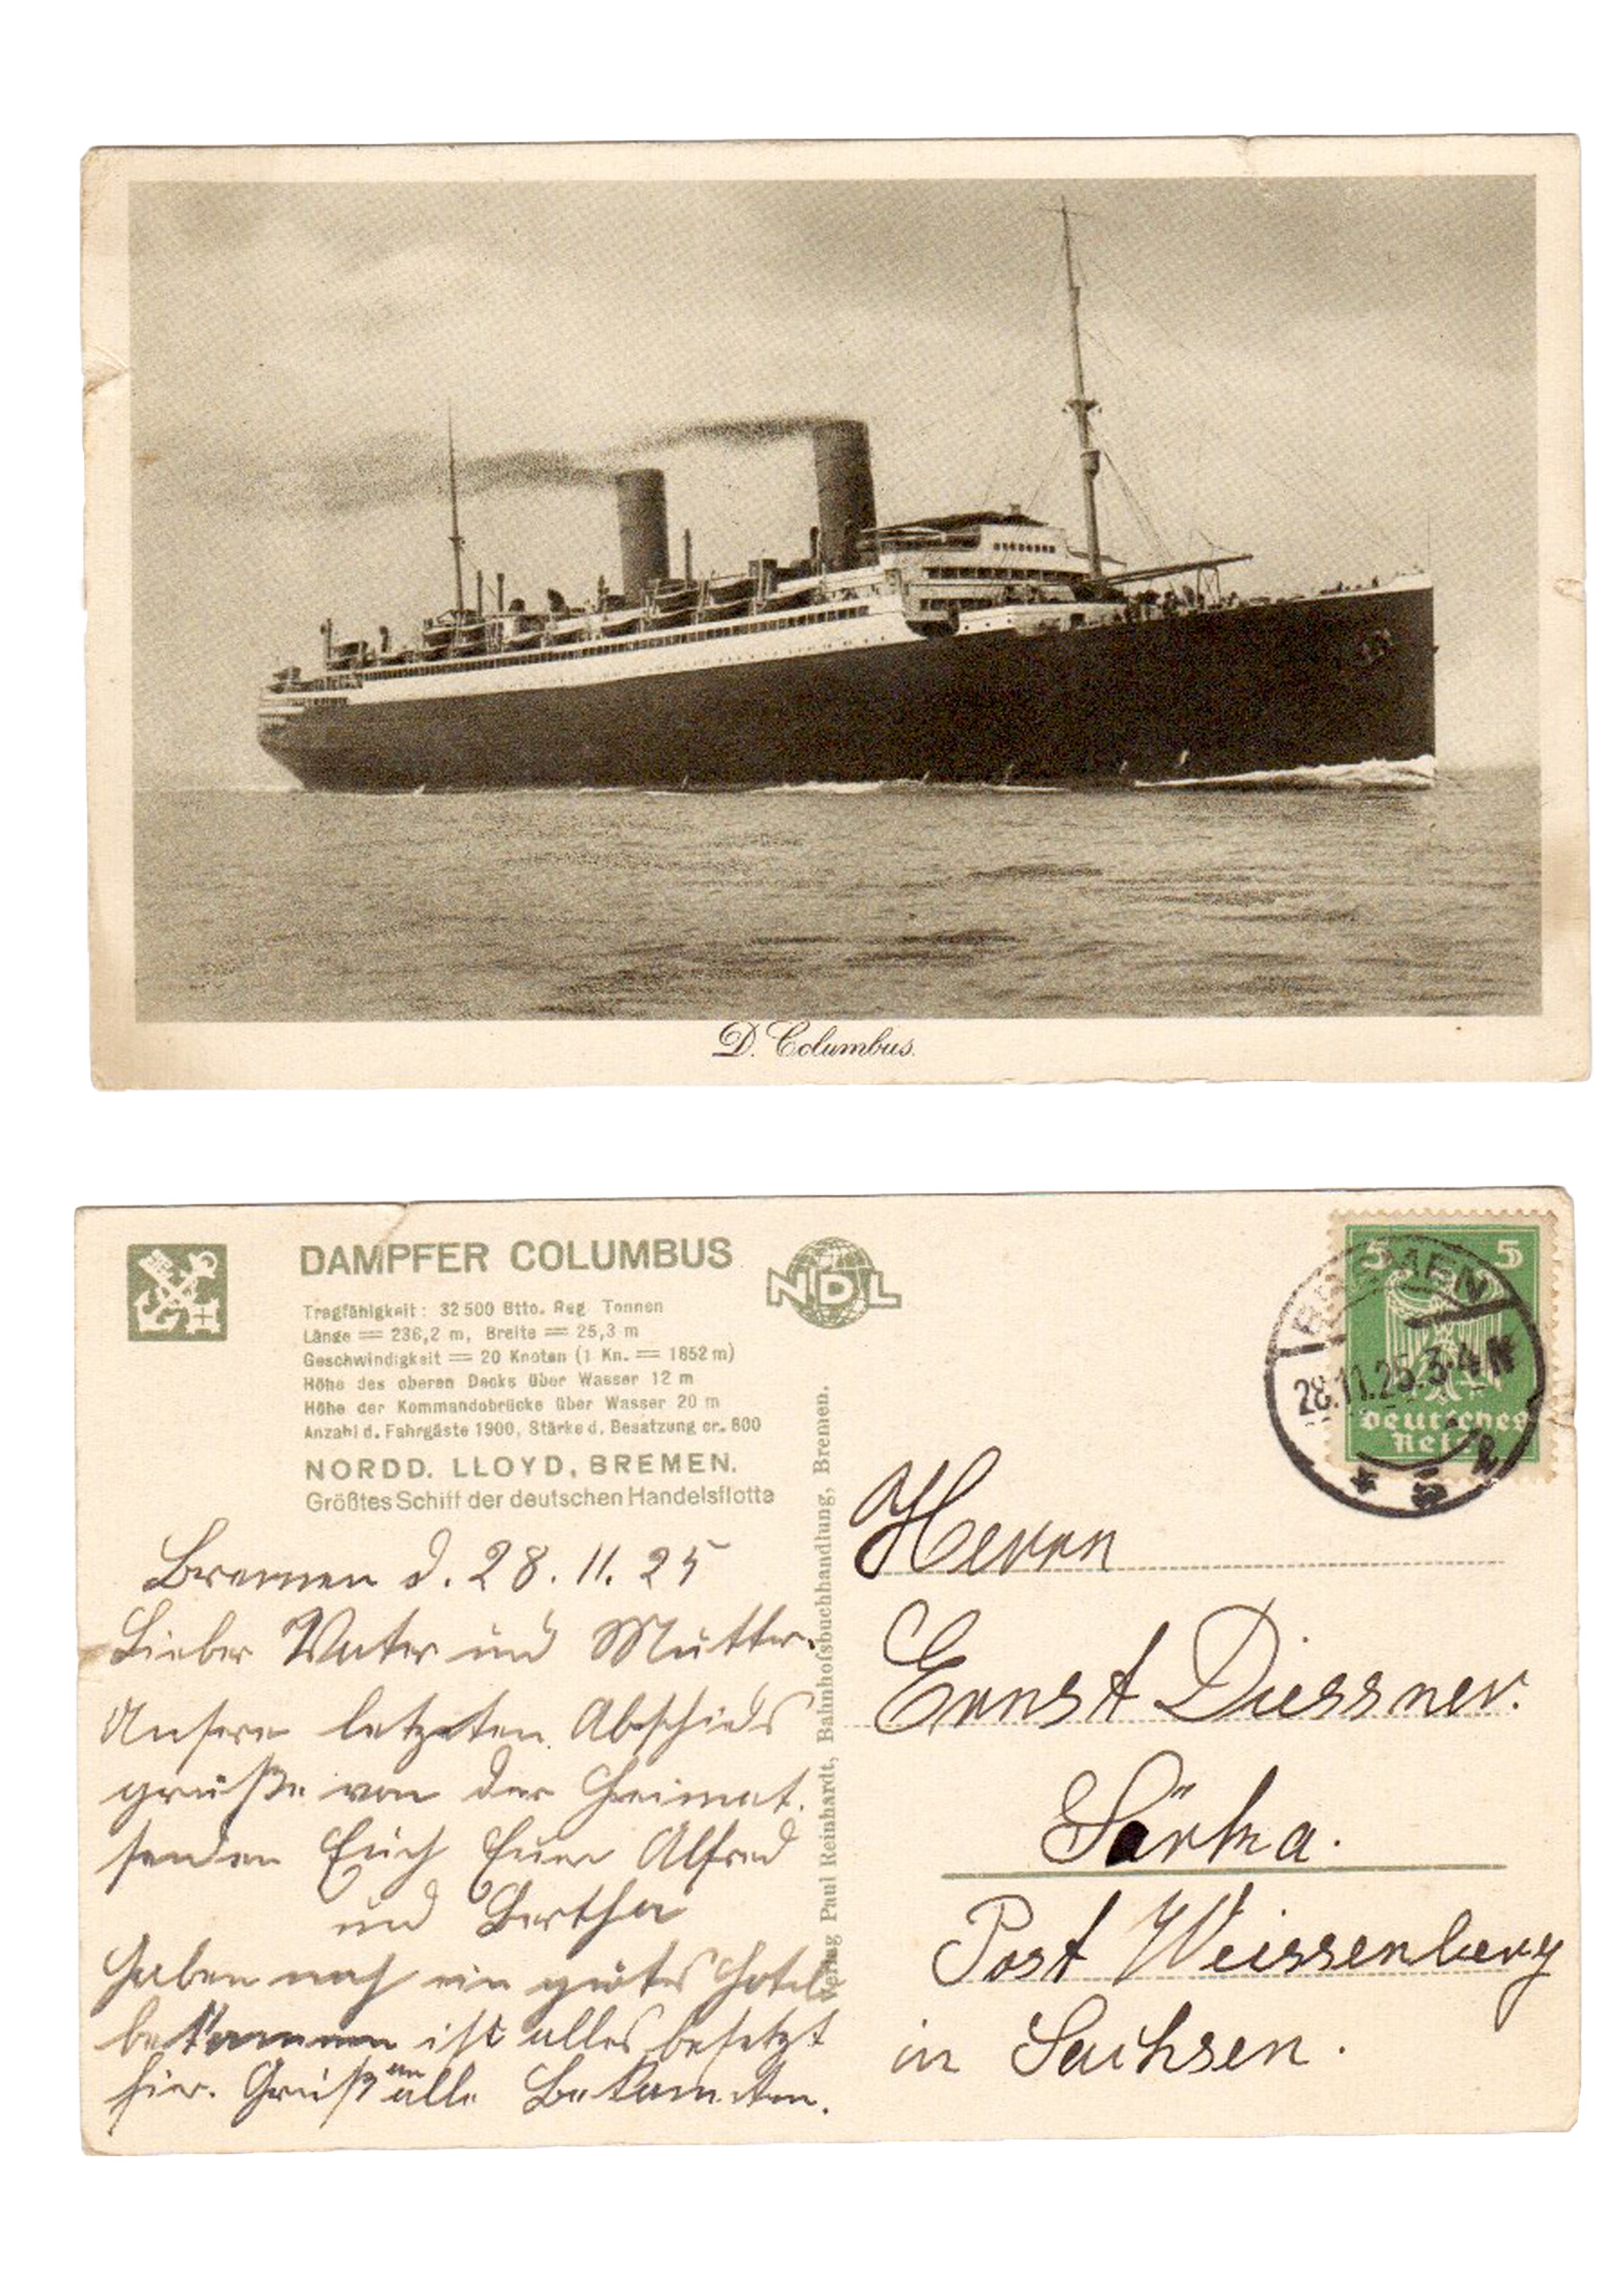 D. Columbus.
DAMPFER COLUMBUS
NDL
Tragfähigkeit: 32500 Btto. Reg. Tonnen
Länge = 236,2 m, Breite = 25,3 m
Geschwindigkeit = 20 Knoten (1 Kn. = 1852 m)
Höhe des oberen Decks über Wasser 12 m
Höhe der Kommandobrücke über Wasser 20 m
Anzahl d. Fahrgäste 1900, Stärke d. Besatzung cr. 800
NORDD. LLOYD, BREMEN.
Größtes Schiff der deutschen Handelsflotte
Bremen d. 28. 11. 25
Lieber Vater und Mutter.
Unsere letzten Abschieds
grüße von der Heimat.
senden Euch Euer Alfred
und Bertha
Haben noch ein gutes Hotel
bekommen ist alles besetzt
hier. Gruß an alle Bekannten.
Verlag Paul Reinhardt, Bahnhofsbuchhandlung, Bremen.
5 5
Deutsches
Reich
BREMEN
28.11.25.3-4 N
2
Herrn
Ernst Diessner.
Särka.
Post Weissenberg
in Sachsen.